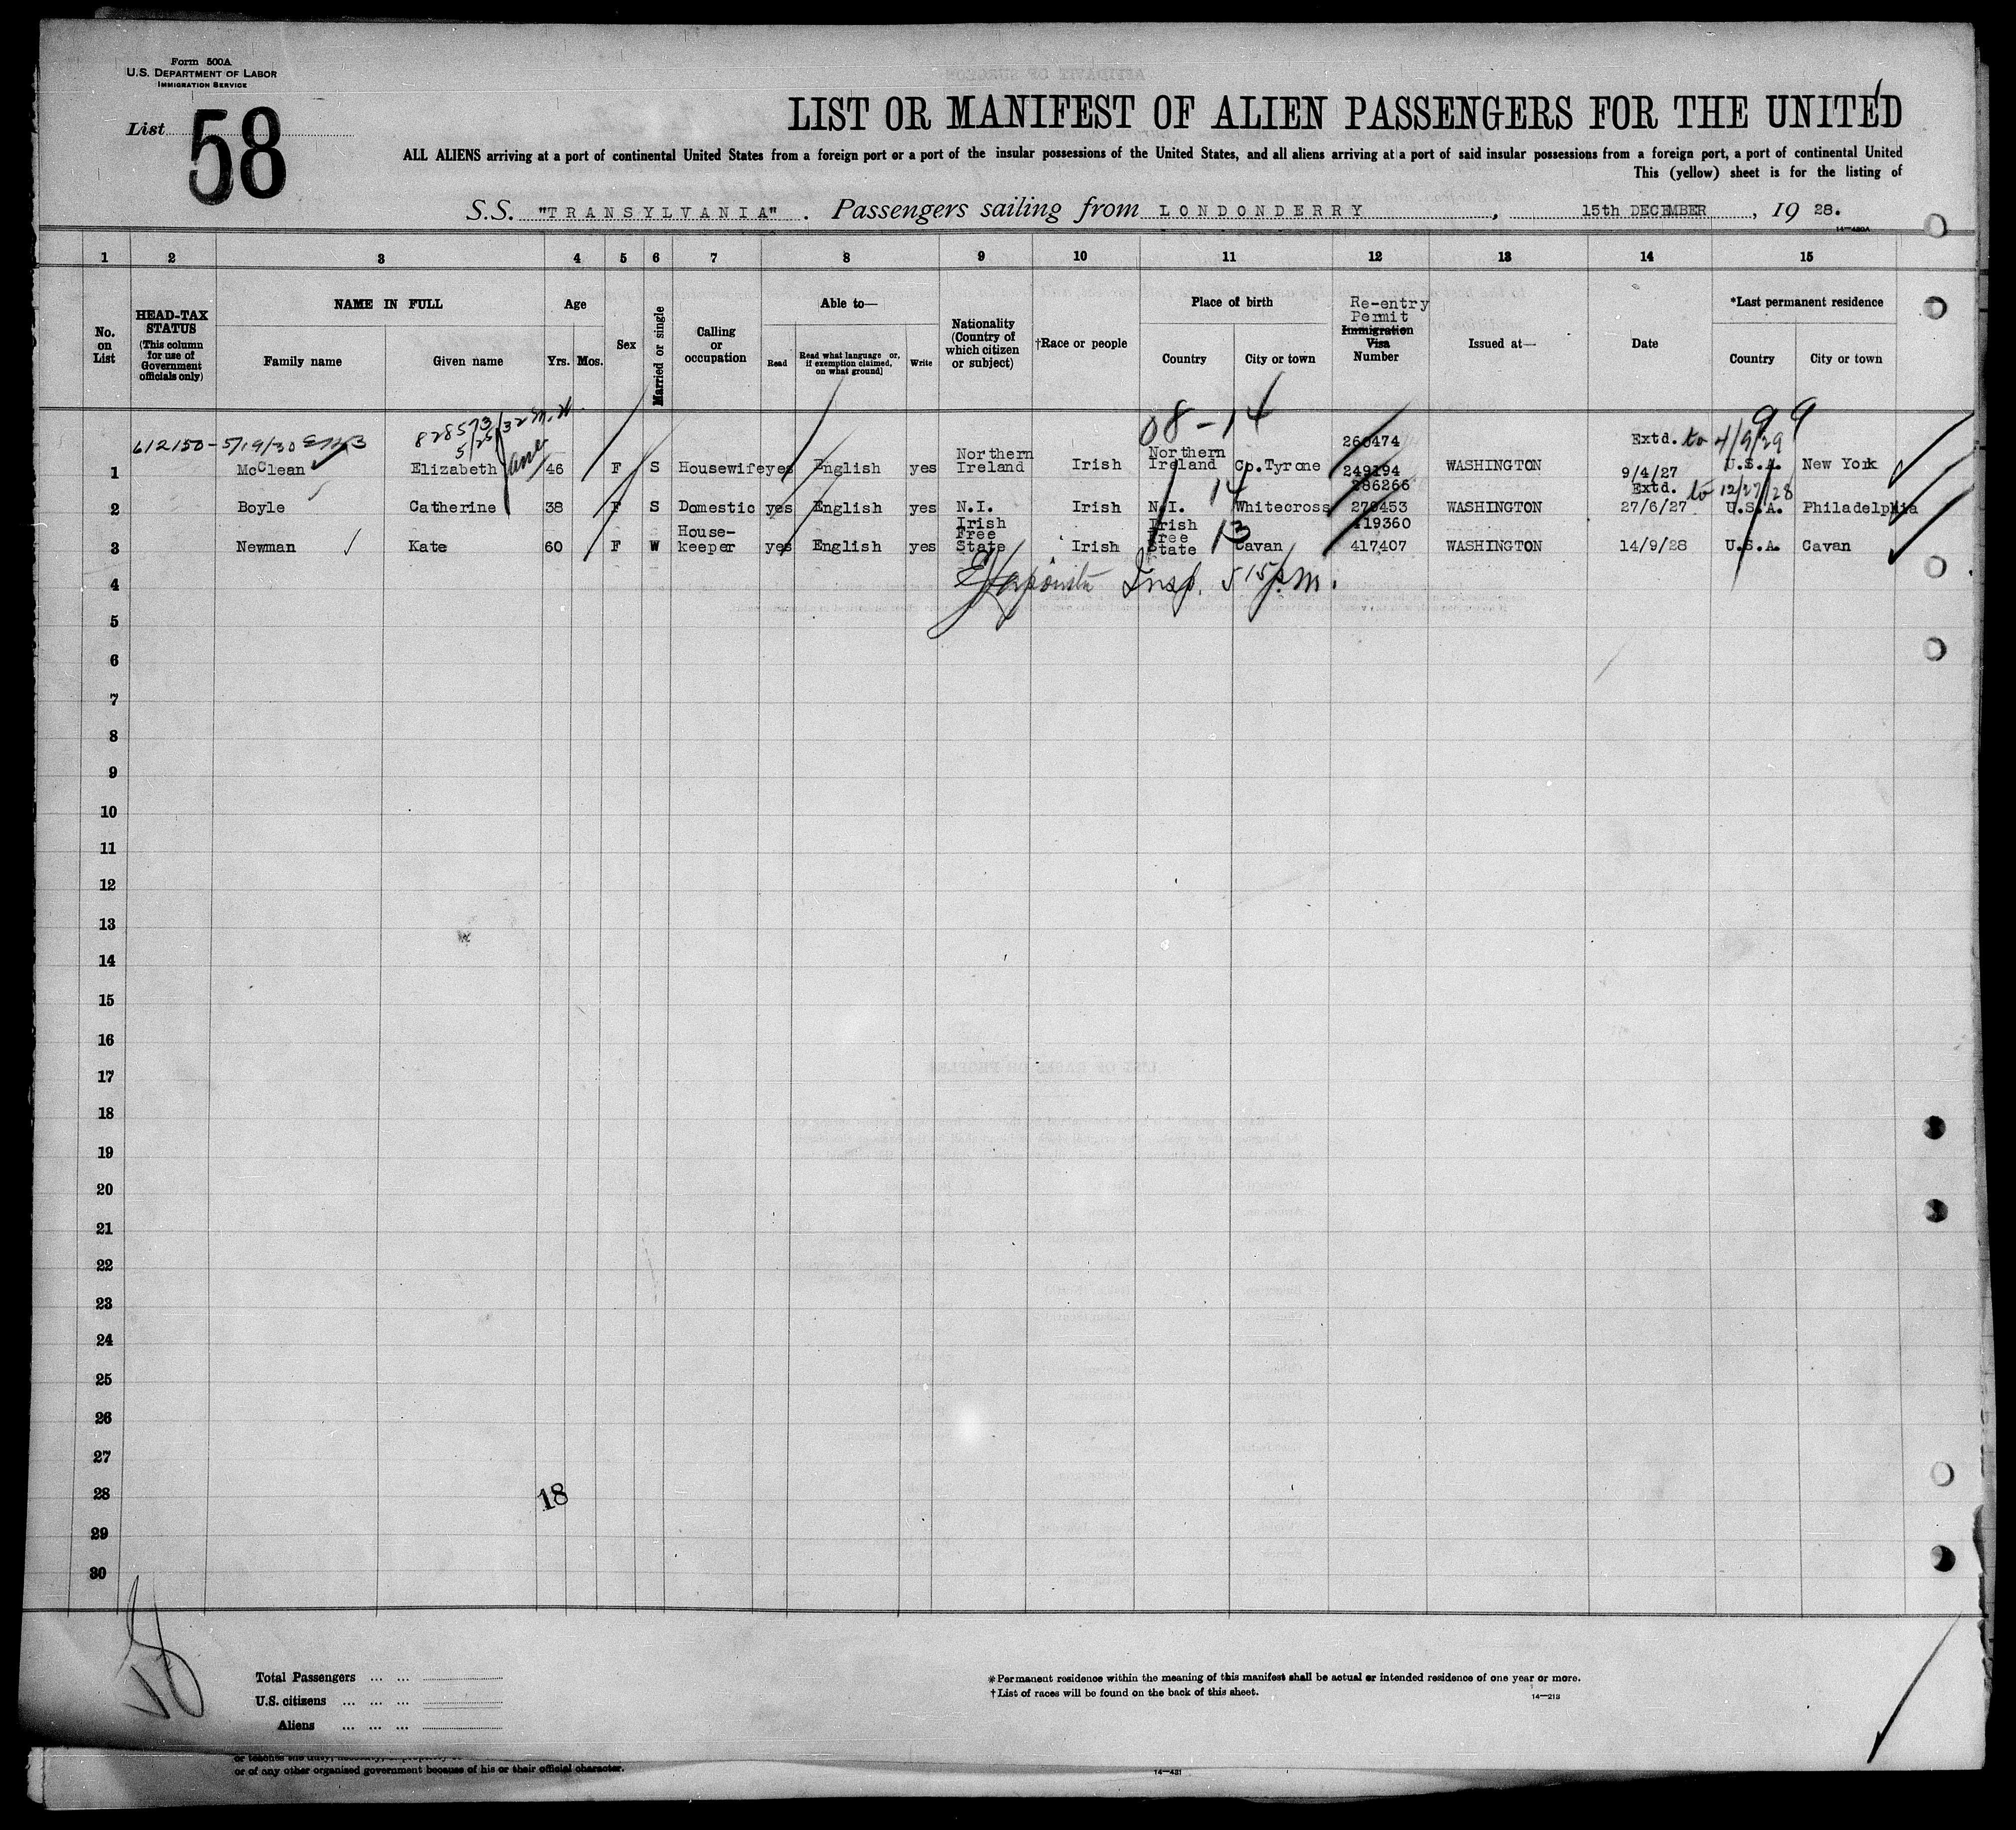 Form 500A
U.S. DEPARTMENT OF LABOR
IMMIGRATION SERVICE
List 58
LIST OR MANIFEST OF ALIEN PASSENGERS FOR THE UNITED
ALL ALIENS arriving at a port of continental United States from a foreign port or a port of the insular possessions of the United States, and all aliens arriving at a port of said insular possessions from a foreign port, a port of continental United
This (yellow) sheet is for the listing of
S.S. "TRANSYLVANIA". Passengers sailing from LONDONDERRY, 15th DECEMBER, 19 28.
14—430A
1 2 3 4 5 6 7 8 9 10 11 12 13 14 15
No. on List
HEAD-TAX STATUS (This column for use of Government officials only)
NAME IN FULL
Family name Given name
Age
Yrs. Mos.
Sex
Married or single
Calling or occupation
Able to—
Read Read what language or, if exemption claimed, on what ground] Write
Nationality (Country of which citizen or subject)
†Race or people
Place of birth
Country City or town
Re-entry Permit
Immigration Visa Number
Issued at—
Date
*Last permanent residence
Country City or town
08-14 99
612150-5/19/30 828573 5/25/32 M.H. 260474 Extd. to 4/9/29
1 McClean Elizabeth Jane 46 F S Housewife yes English yes Northern Ireland Irish Northern Ireland Co.Tyrone 249194 WASHINGTON 9/4/27 U.S.A. New York
14 286266 Extd. to 12/27/28
2 Boyle Catherine 38 F S Domestic yes English yes N.I. Irish N.I. Whitecross 270453 WASHINGTON 27/6/27 U.S.A. Philadelphia
13 419360
3 Newman Kate 60 F W House-keeper yes English yes Irish Free State Irish Irish Free State Cavan 417407 WASHINGTON 14/9/28 U.S.A. Cavan
4 Insp. 5 15 p.m.
5
6
7
8
9
10
11
12
13
14
15
16
17
18
19
20
21
22
23
24
25
26
27
28 18
29
30
Total Passengers ... ...
U.S. citizens ... ... ...
Aliens ... ... ...
*Permanent residence within the meaning of this manifest shall be actual or intended residence of one year or more.
†List of races will be found on the back of this sheet.
14—213
or of any other organized government because of his or their official character.
14—431